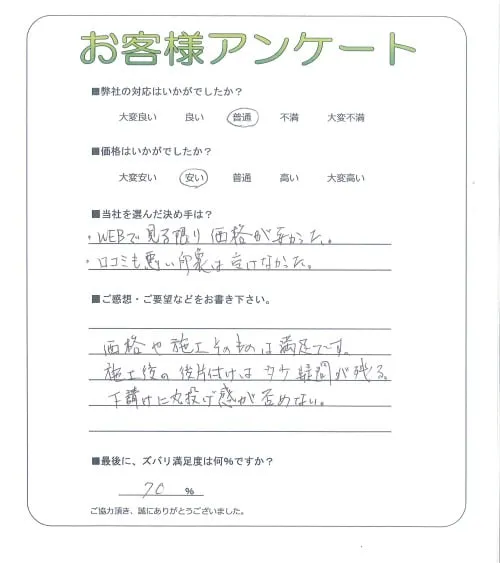 お客様アンケート
■弊社の対応はいかがでしたか?
大変良い 良い 普通 不満 大変不満
■価格はいかがでしたか?
大変安い 安い 普通 高い 大変高い
■当社を選んだ決め手は?
・WEBで見る限り価格が安かった。
・口コミも悪い印象は受けなかった。
■ご感想・ご要望などをお書き下さい。
価格や施工そのものは満足です。
施工後の後片付けは 疑問が残る。
下請けに丸投げ感が否めない。
■最後に、ズバリ満足度は何%ですか?
70 %
ご協力頂き、誠にありがとうございました。